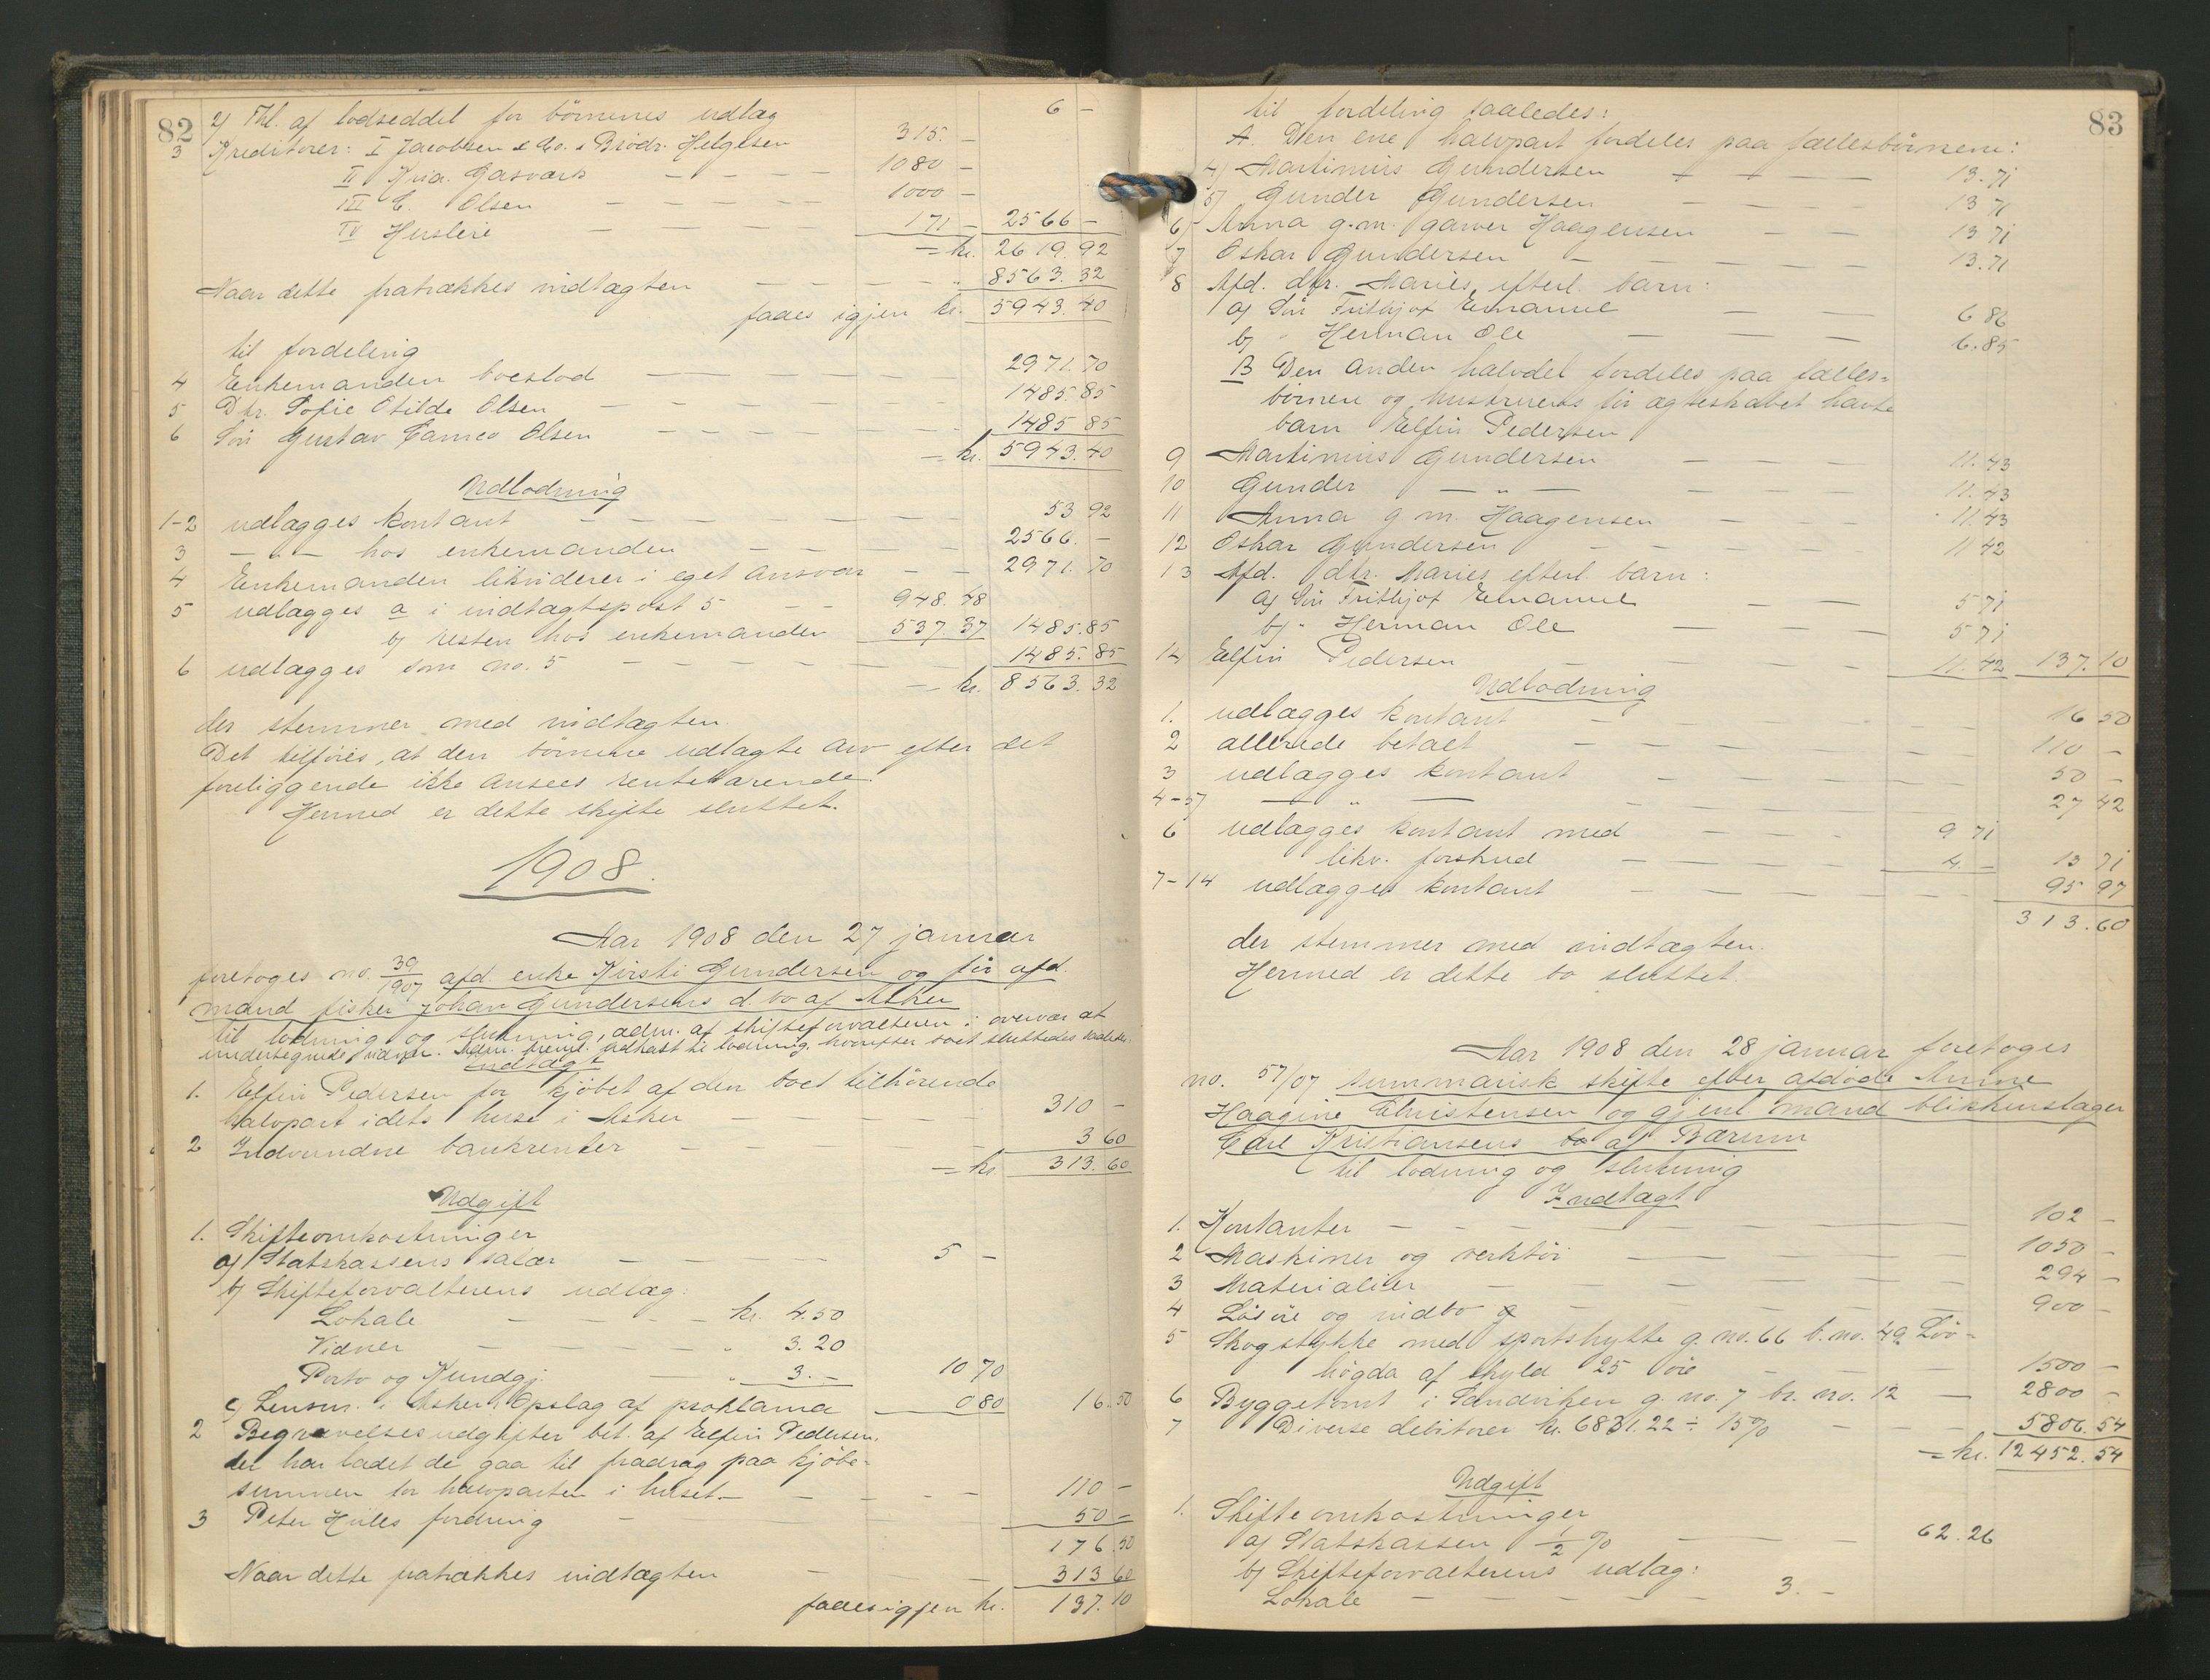 82
2) Thl. af lodseddel for börnenes udlæg 6 -
3 Kreditorer: I Jacobsen & Co. & Brödr. Helgesen 315. -
II Kria. Gasværk - - - - 1080 -
III C. Olsen - - - - - 1000 -
IV Husleie - - - - 171 - 2566 -
= kr. 2619.92
Naar dette fratrækkes indtægten - - - - " 8563.32
faaes igjen kr. 5943.40
til fordeling
4 Enkemanden boeslod - - - - - 2971.70
5 Dtr. Sofie Otilde Olsen - - - - - 1485.85
6 Sön Gustav Olsen - - - - - 1485 85
= kr. 5943.40
Udlodning
1-2 udlægges kontant - - - - - - 53 92
3 - " - hos enkemanden - - - 2566. -
4 Enkemanden likviderer i eget ansvar - - 2971.70
5 udlægges a i indtægtspost 5 - - 948.48
b) resten hos enkemanden 537.37 1485.85
6 udlægges som no. 5 - - - - - 1485.85
= kr. 8563.32
der stemmer med indtægten
Det tilföies, at den börnene udlagte arv efter det
foreliggende ikke ansees rentebærende.
Hermed er dette skifte sluttet.
1908.
Aar 1908 den 27 januar
foretoges no. 39/1907 afd. enke Kirsti Gundersen og för afd.
mand fisker Johan Gundersens d. bo af Asker
til lodning og slutning, adm. af skifteforvalteren i overvær af
undertegnede vidner. Adm. freml. udkast til lodning. hvorefter boet sluttedes saaledes
Indtægt
1. Elfin Pedersen for kjöbet af den boet tilhörende
halvpart i dets huse i Asker - - - - 310 -
2 Indvundne bankrenter - - - - 3 60
= kr. 313.60
Udgift
1. Skifteomkostninger
a) Statskassens salær - - - - 5 -
b) Skifteforvalterens udlæg:
Lokale - - - - kr. 4.50
Vidner - - - - " 3.20
Porto og Kundgj. - - " 3. - 10 70
c) Lensm. i Asker: Opslag af proklama 0 80 16.50
2 Begravelsesudgifter bet. af Elfin Pedersen,
der har ladet de gaa til fradrag paa kjöbe-
summen for halvparten i huset - - - - - 110 -
3 Peter fordring - - 50 -
176.50
Naar dette fratrækkes indtægten - - - 313 60
faaes igjen kr. 137.10
83
til fordeling saaledes:
A. Den ene halvpart fordeles paa fællesbörnene:
4) Martinius Gundersen - - - - 13.71
5) Gunder Gundersen - - - - 13 71
6) Anna g.m. garver Haagensen - - - 13 71
7 Oskar Gundersen - - - - - 13.71
8 Afd. dtr. Maries efterl. barn:
a) Sön Frithjof Emanuel - - - 6 86
b) " Herman Ole - - - 6.85
B Den anden halvdel fordeles paa fælles-
börnene og hustruens för ægteskabet havte
barn Elfin Pedersen
9 Martinius Gundersen - - - 11.43
10 Gunder - " - - - - 11.43
11 Anna g m. Haagensen - - - 11.43
12 Oskar Gundersen - - - - 11 42
13 Afd. dtr. Maries efterl. barn:
a) Sön Frithjof Emanuel - - 5 71
b) " Herman Ole - - - 5 71
14 Elfin Pedersen - - - 11.42 137.10
Udlodning
1. udlægges kontant - - - - 16 50
2 allerede betalt - - - - - 110 -
3 udlægges kontant - - - - 50 -
4-5) - " - - - - - 27 42
6 udlægges kontant med - - - 9 71
likv. forskud - - - 4 - 13 71
7-14 udlægges kontant - - - - 95 97
313.60
der stemmer med indtægten.
Hermed er dette bo sluttet.
Aar 1908 den 28 januar foretoges
no. 57/07 summarisk skifte efter afdöde Anne
Haagine Christensen og gjenl. mand blikkenslager
Carl Kristiansens bo af Bærum
til lodning og slutning
Indtægt
1. Kontanter - - - - - - 102 -
2 Maskiner og verktöi - - - - 1050 -
3 Materialier - - - - - 294 -
4 Lösöre og indbo - - - - 900 -
5 Skogstykke med sportshytte g. no. 66 b. no. 49 Löv-
högda af skyld 25 öre - - - 1500 -
6 Byggetomt i Sandviken g. no. 7 br. no. 12 - 2800 -
7 Diverse debitorer kr. 6831.22 ÷ 15% - - 5806.54
= kr. 12452.54
Udgift
1. Skifteomkostninger
a) Statskassen 1/2 % - - - 62.26
b) Skifteforvalterens udlæg:
Lokale - - - - - 3. -